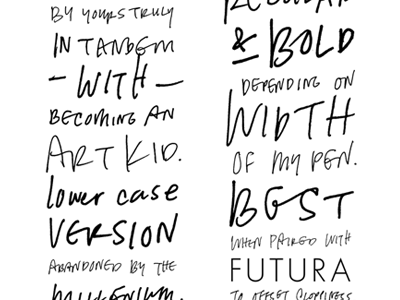 BY YOURS TRULY
IN TANDEM
- WITH -
BECOMING AN
ART KID.
lower case
VERSION
ABANDONED BY THE
MILLENIUM.
REGULAR
& BOLD
DEPENDING ON
WIDTH
OF MY PEN.
BEST
WHEN PAIRED WITH
FUTURA
TO OFFSET SLOPPINESS